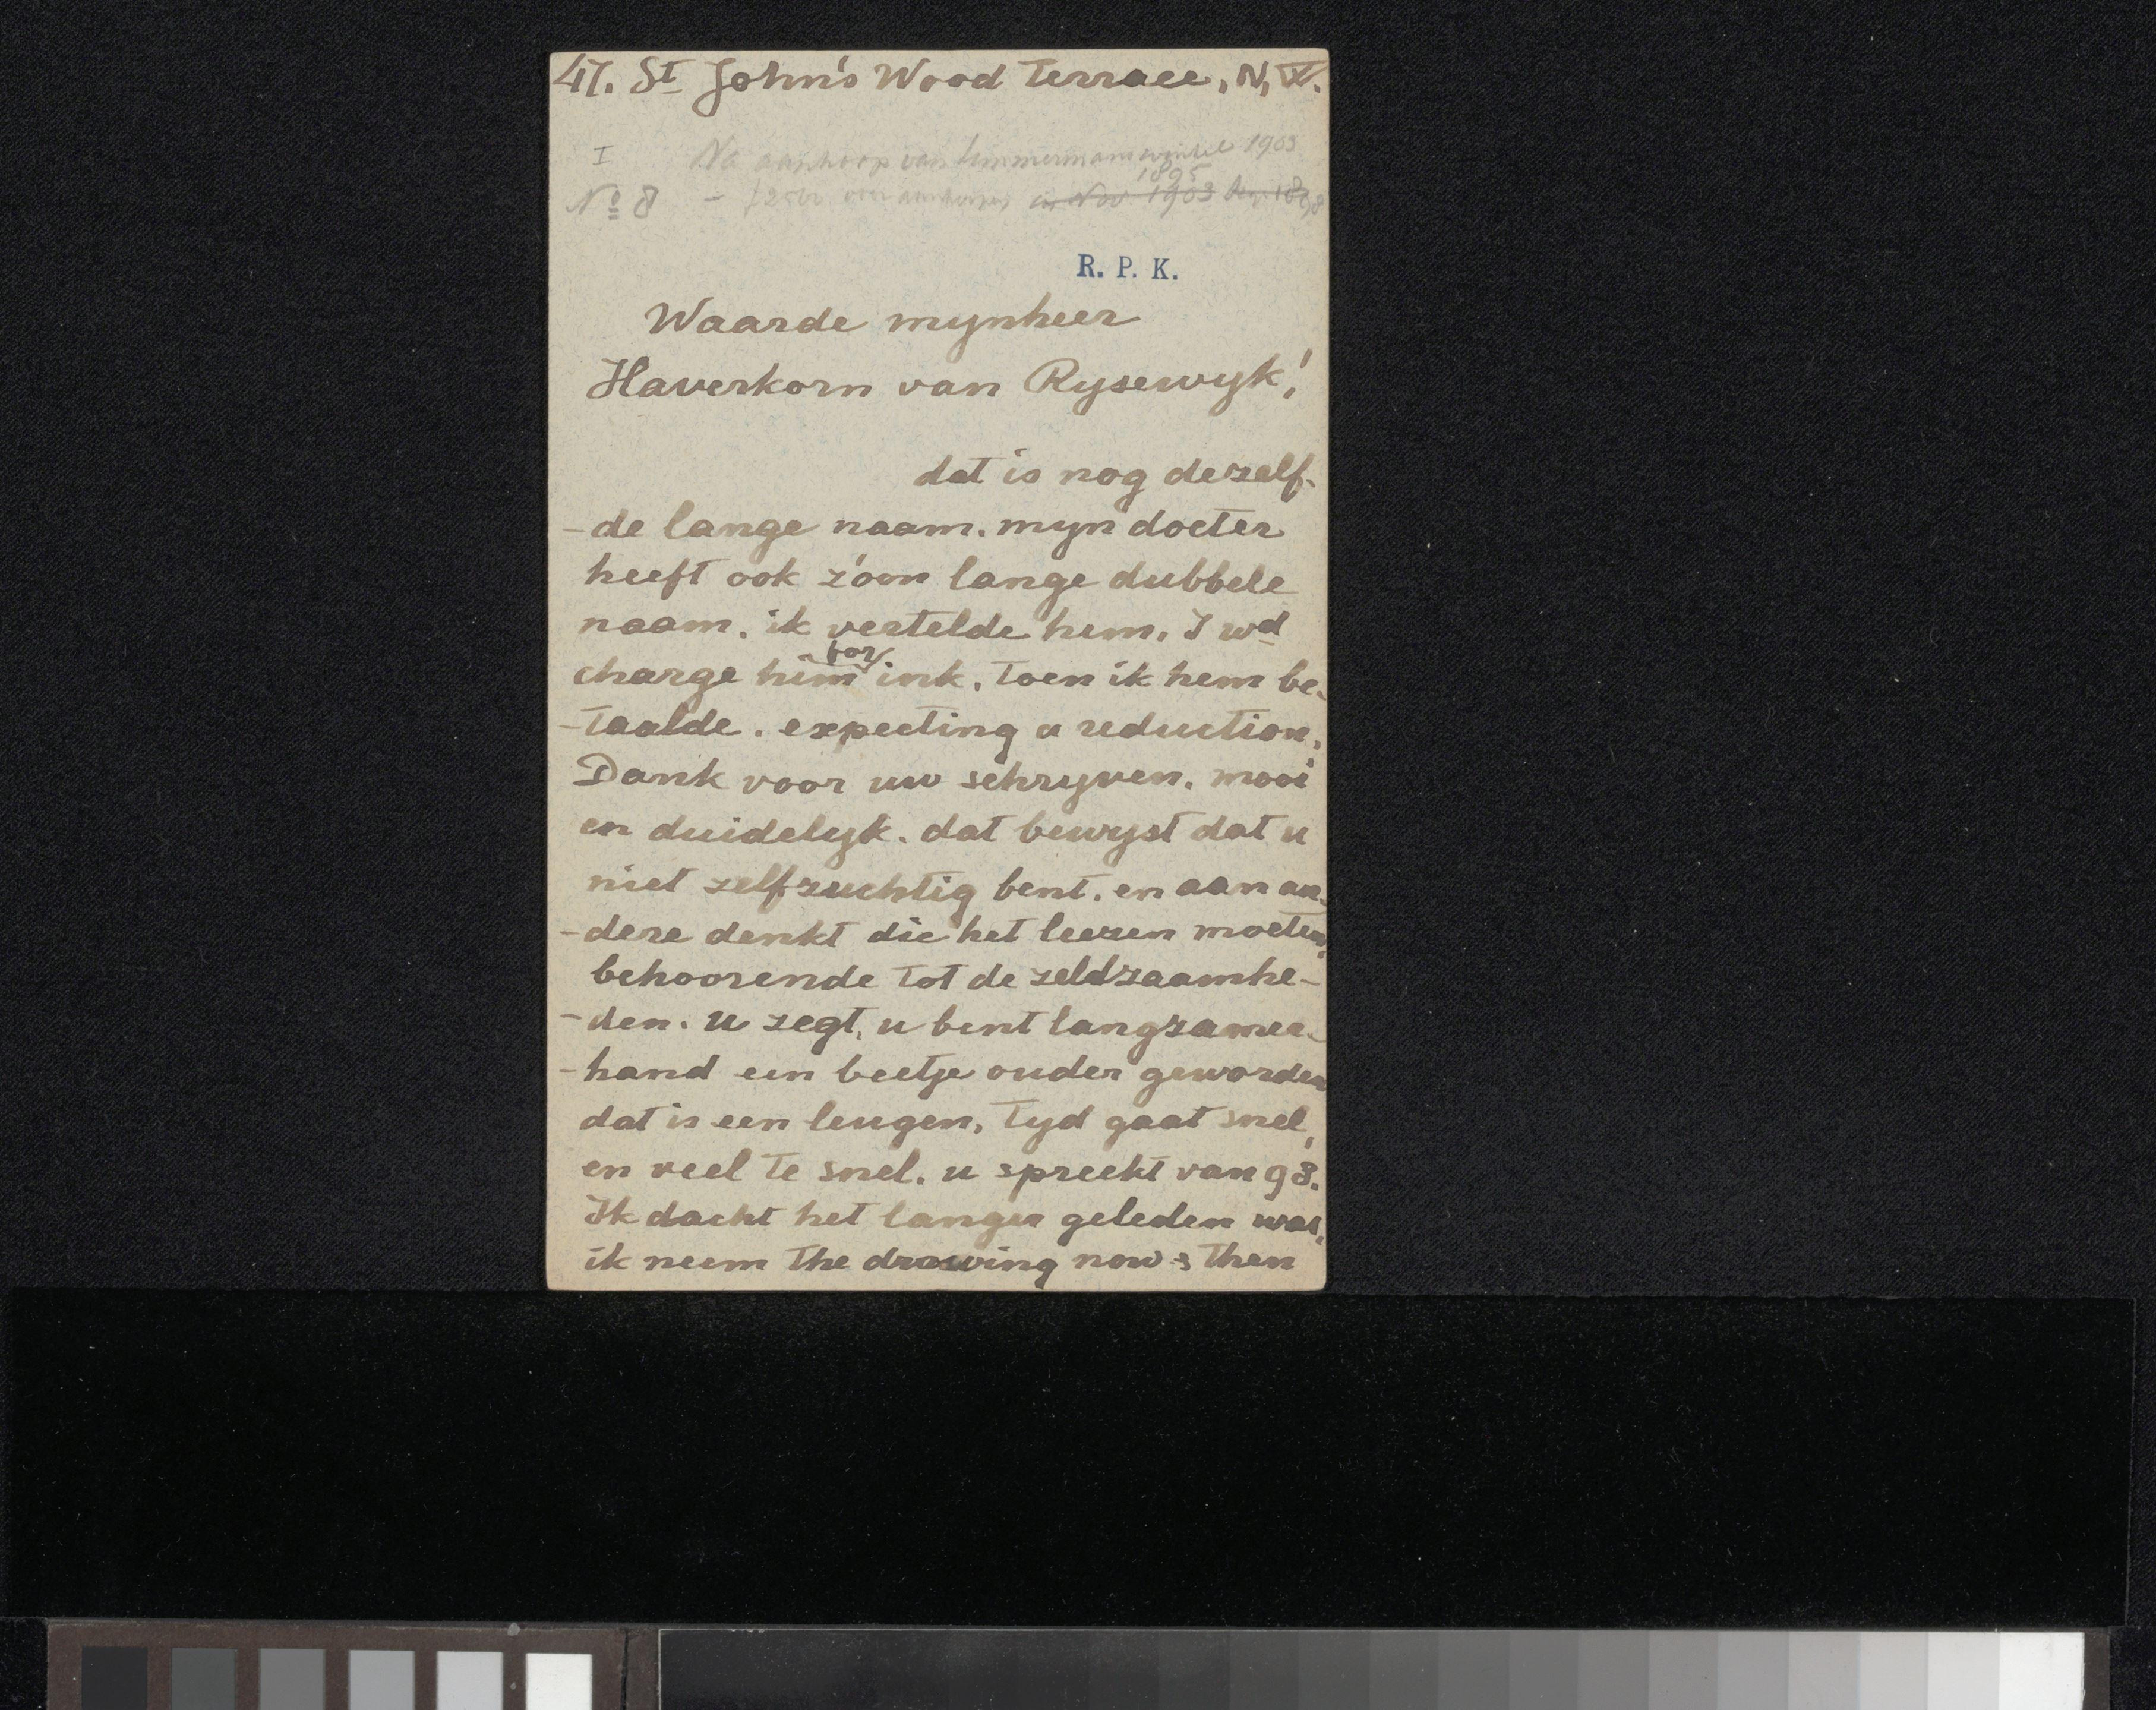 47. St John's Wood Terrace, N, W.
I Na aankoop van Timmermanswinkel 1903
1895
No 8 - in Nov. 1903
R. P. K.
Waarde mynheer
Haverkorn van Rysewyk!
dat is nog dezelf-
-de lange naam. myn docter
heeft ook z'oon lange dubbele
naam. ik vertelde hem. I wd
for
charge him ink. toen ik hem be-
-taalde. expecting a reduction.
Dank voor uw schryven. mooi
en duidelyk. dat bewyst dat u
niet zelfzuchtig bent. en aan an-
-dere denkt die het leezen moeten,
behoorende tot de zeldzaamhe-
-den. u zegt, u bent langzamer-
-hand een beetje ouder geworden
dat is een leugen, tyd gaat snel,
en veel te snel. u spreekt van 98.
Ik dacht het langer geleden was.
ik neem the drawing now & then